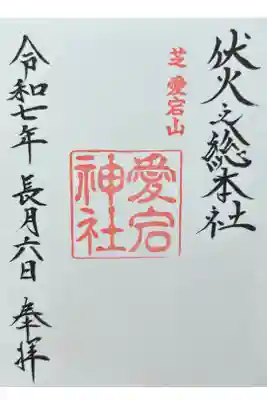 伏火之総本社
芝 愛宕山
愛宕神社
令和七年 長月六日 奉拝